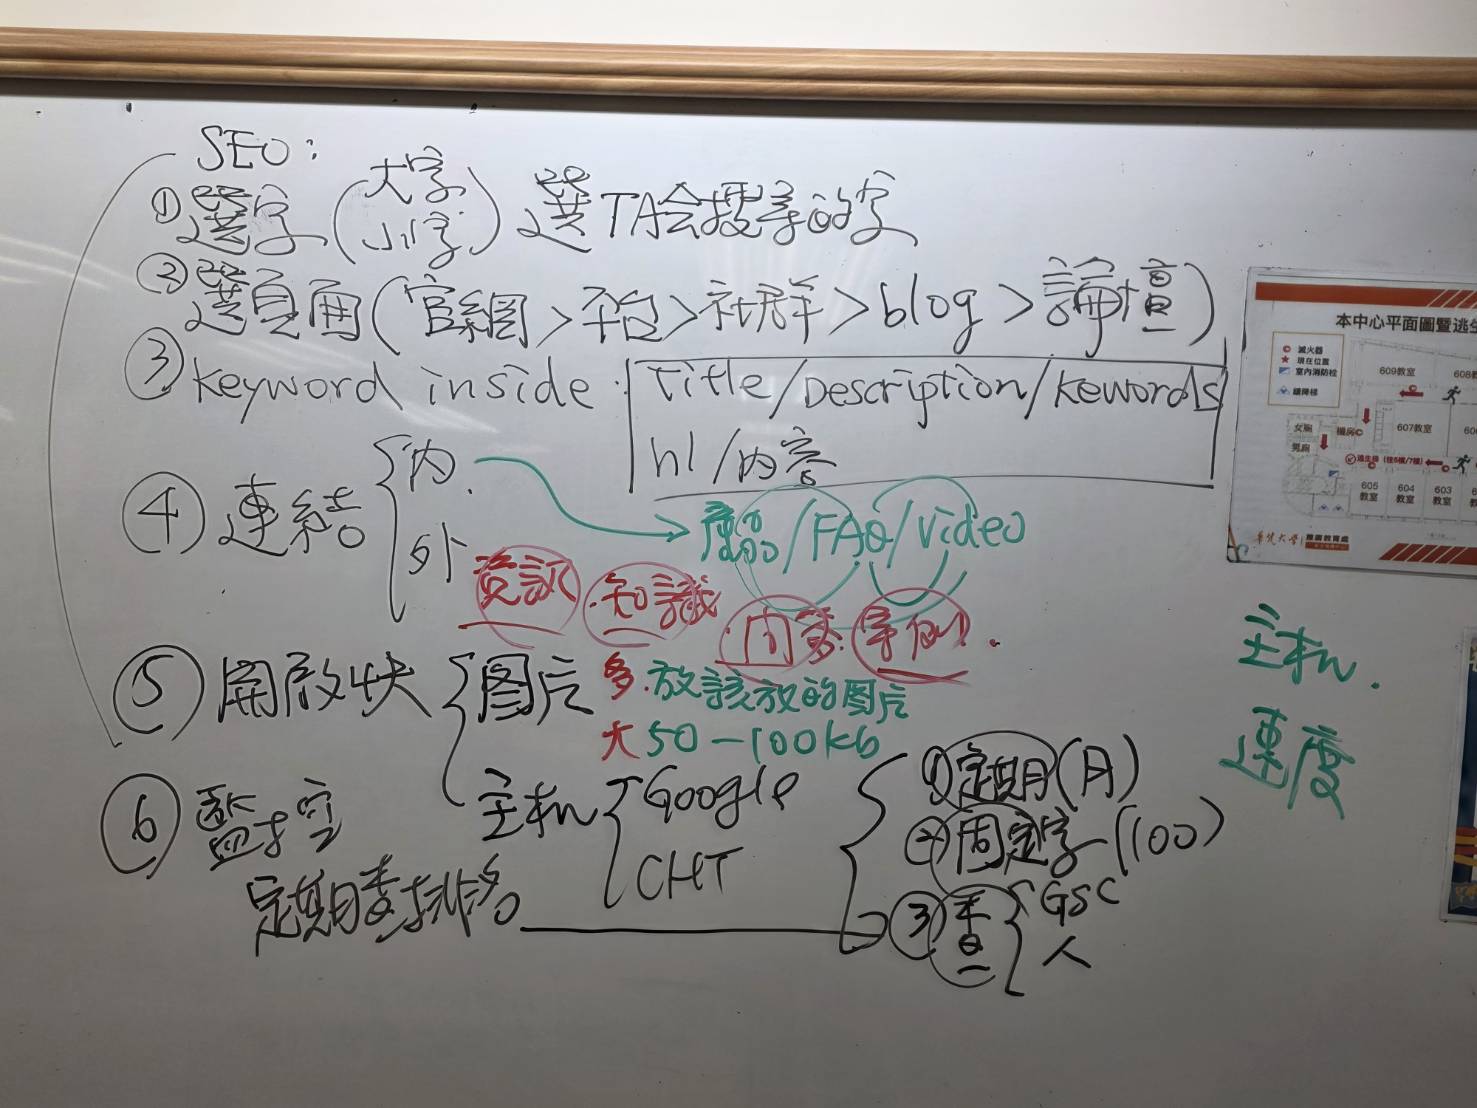 SEO:
①選字(大字 小字) 選TA会搜尋的字
②選頁面(官網>平台>社群>blog>論壇)
③keyword inside: Title/Description/kewords
h1/内容
④連結 内.
外
產品/FAQ/Video
資訊.知識
.内容.案例.
⑤開啟快 图片 多.放該放的图片
大 50-100kb
主机 Google
CHT
⑥監控
定期查排名
①定期(月)
②固定字(100)
③查 GSC
人
主机.
速度
本中心平面圖暨逃生
滅火器
現在位置
室內消防栓
緩降梯
609教室
608教
女廁
男廁
機房
607教室
606
逃生梯
605教室
604教室
603教室
華梵大學 推廣教育處